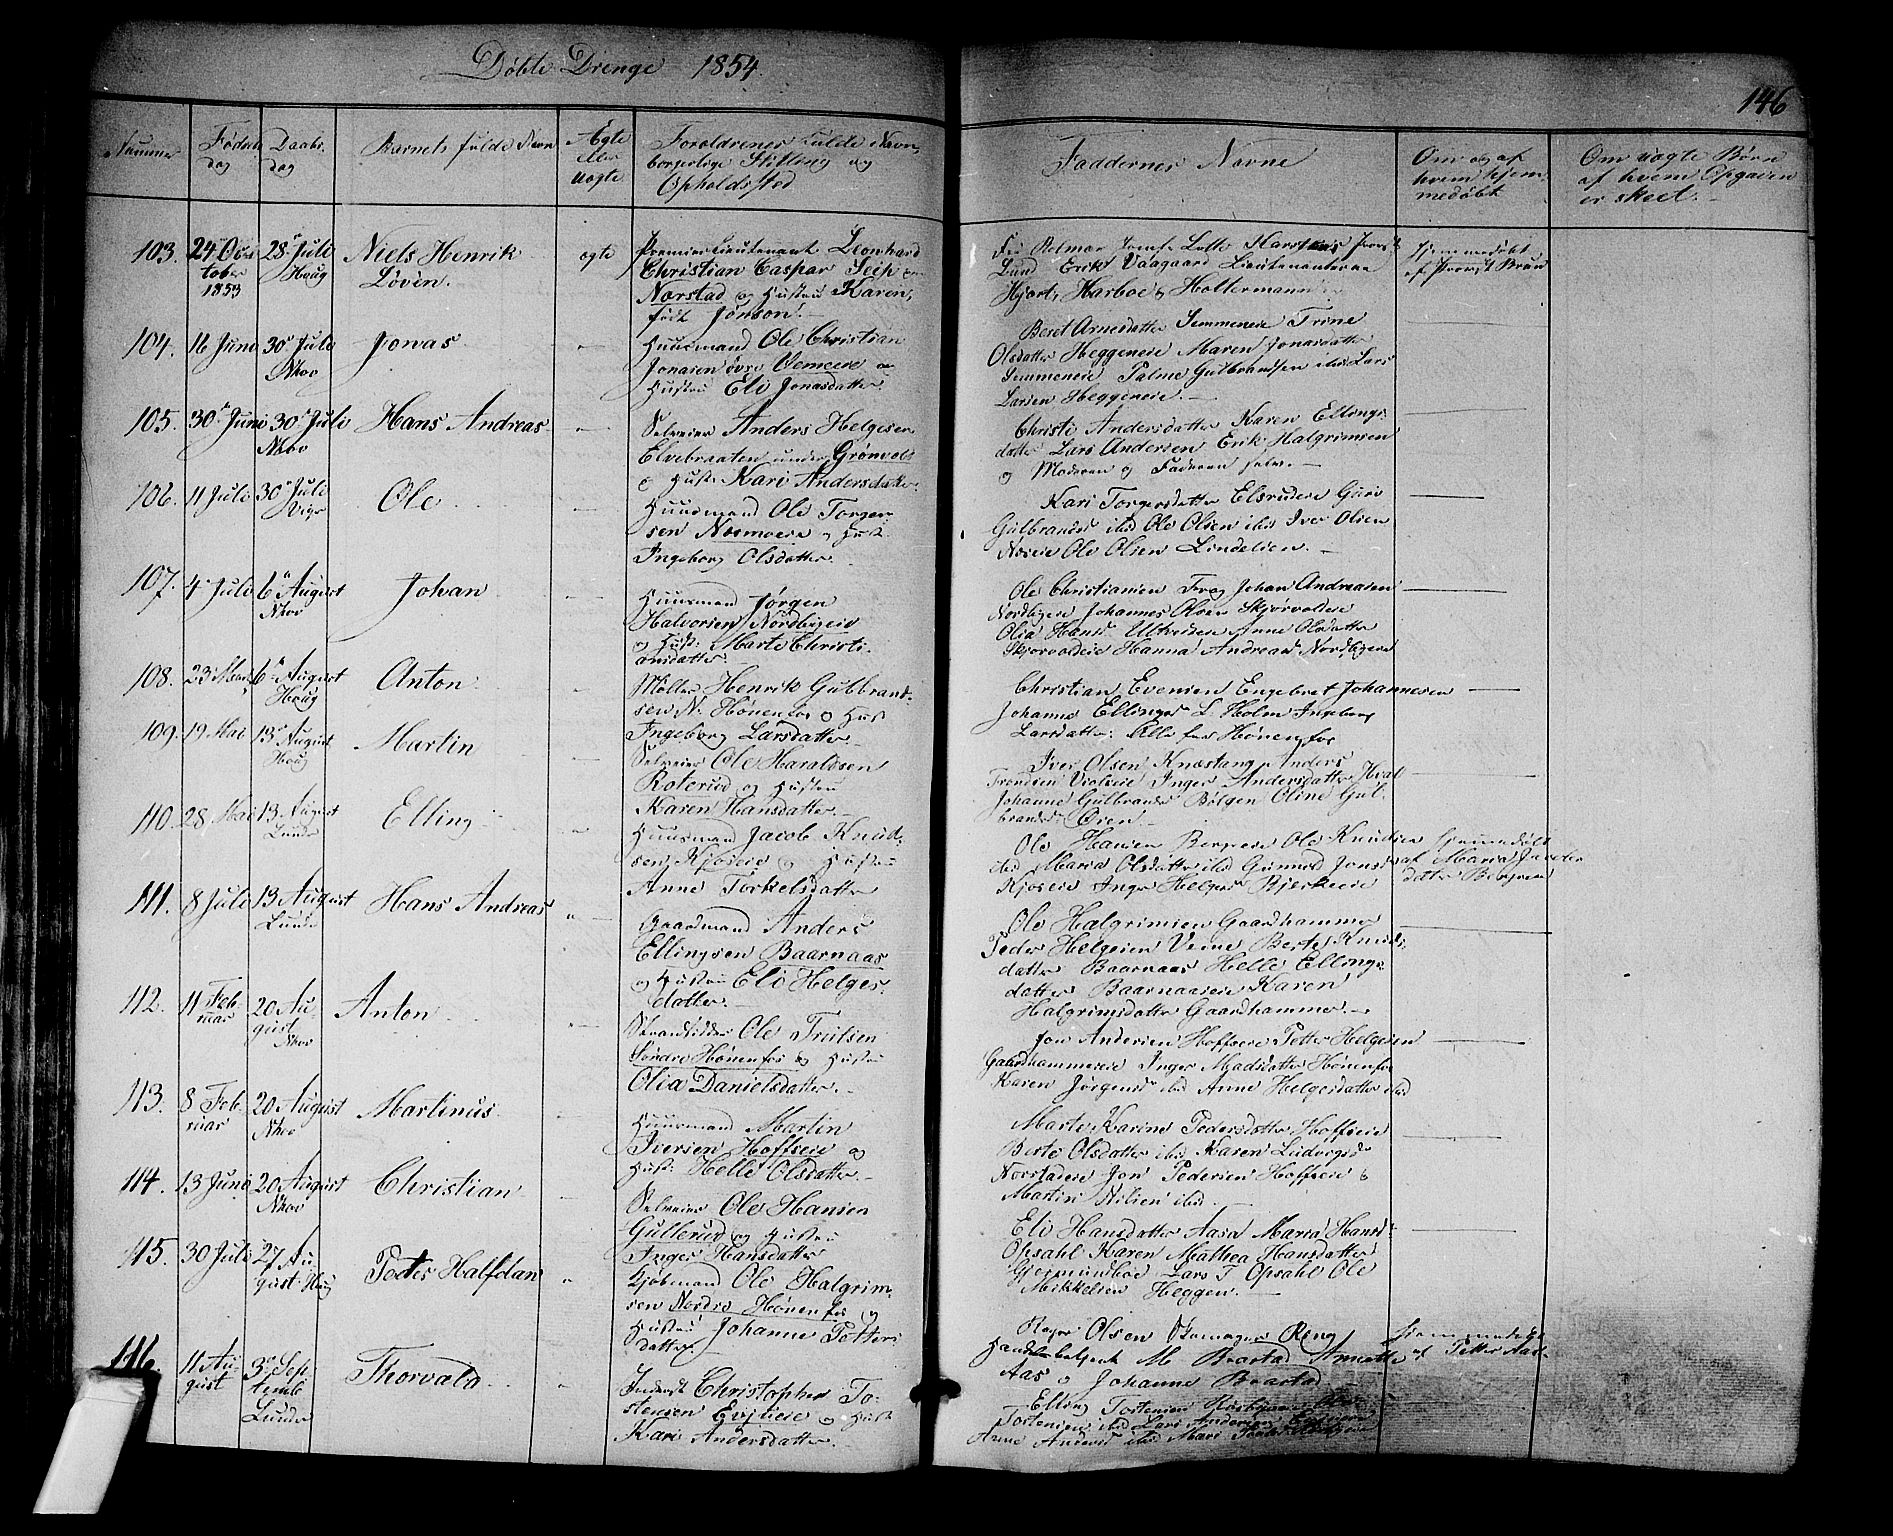 Døbte Drenge 1854.
146
Nummer
Føds
dag
Daabs
dag
Barnets fulde Navn
Ægte
eller
uægte
Forældrenes fulde Navn
borgerlige Stilling og
Opholdssted
Faddernes Navne
Om og af
hvem hjem
medøbt
Om uægte Børn
af hvem Opgaven
er skeet.
103. 24 Oc
tober
1853
28 Juli
Houg
Niels Henrik
Løvén.
ægte
Premierlieutenant Leonhard
Christian Caspar Seip
Norstad og Hustru Karen
født Jönson.
Lund Erik Vaagaard Lieutenanterne
Hjort, Harboe & Holtermann
Hjemmedøbt
af Provst Bruun
104. 16 Juni 30 Juli
Nhov
Jonas
Huusmand Ole Christian
Jonasen øvre Vemeeie og
Hustru Eli Jonasdatter
Beret Arnesdatter Semmeneie Trine
Olsdatter Heggeneie Maren Jonasdatter
Semmeneie Palme Gulbrandsen ibid Lars
Larsen Heggeneie.
105. 30 Juni 30 Juli
Nhov
Hans Andreas
Selveier Anders Helgesen
Elvebraaten under Grønvold
og Hust: Kari Andersdatter
Christi Andersdatter Karen Ellings
datter Lars Andersen Erik Halgrimsen
og Moderen og Faderen selv.
106. 11 Juli 30 Juli
Viger
Ole
Huusmand Ole Torger
sen Næsmoeie og Hust
Ingeborg Olsdatter.
Kari Torgersdatter Elsrudeie Guri
Gulbrandsd ibid Ole Olsen ibid Iver Olsen
Næseie Ole Olsen Lindelien.
107. 4 Juli 6 August
Nhov
Johan
Huusmand Jørgen
Halvorsen Nordbyeie
og Hust: Marte Christi
ansdatter.
Ole Christiansen Trøg Johan Andreasen
Nordbyeie Johannes Olsen Skjørvoldeie
Olia Hansd Ultveteie Anne Olsdatter
Skjørvoldeie Hanna Andreasd Nordbyeie
108. 23 6 August
Houg
Anton
Møller Henrik Gulbrand
sen N. Hønenfos og Hust
Ingeborg Larsdatter.
Christian Evensen Engebret Johannesen
Johanne Ellingsd L. Holm Ingeborg
Larsdatter: Alle fra Hønenfos
109. 19 Mai 13 August
Houg
Martin
Selveier Ole Haraldsen
Roterud og Hustru
Karen Hansdatter.
Iver Olsen Knæstang Anders
Trondsen Inger Andersdatter Hval
Johanne Gulbrandsd Bølgen Oline Gul
brandsd Øien.
110. 28 Mai 13 August
Lunder
Elling
Huusmand Jacob Knud
sen Kjoseie og Hustru
Anne Torkelsdatter
Ole Hansen Bergseie Ole Knudsen
ibid Maria Olsdatter ibid Gunned Jonsd
Kjoseie Inger Helgesd Bjerkeeie
Hjemmedøbt
af Maria Jacobs
datter
111. 8 Juli 13 August
Lunder
Hans Andreas
Gaardmand Anders
Ellingsen Baarnaas
og Hustru Eli Helges
datter.
Ole Halgrimsen Gaardhammer
Peder Helgesen Veme Berte Knuds
datter Baarnaas Helle Ellings
datter Baarnaaseie Karen
Halgrimsdatter Gaardhammer.
112. 11 Feb
ruar
20 Au
gust
Nhov
Anton
Strandsidder Ole Trulsen
Søndre Hønenfos og Hustru
Olia Danielsdatter.
Jon Andersen Hoffseie Petter Helgesen
Gaardhammereie Inger Madsdatter Hønenfos
Karen Jørgensd ibid Anne Helgesdatter ibid
113. 8 Feb
ruar
20 August
Nhov
Martinus
Huusmand Martin
Iversen Hoffseie og
Hust: Helle Olsdatter.
Marte Karine Pedersdatter Hoffseie
Berte Olsdatter ibid Karen Ludvigsd
Norstadeie Jon Pedersen Hoffseie &
Martin Nilsen ibid.
114. 13 Juni 20 August
Nhov
Christian
Selveier Ole Hansen
Gullerud og Hustru
Inger Hansdatter
Eli Hansdatter Aasa Maria Hansd
Opsahl Karen Mathea Hansdatter
Gjermundboe Lars T. Opsahl Ole
Mikkelsen Heggen.
115. 30 Juli 27 Au
gust Houg
Petter Halfdan
Kjøbmand Ole Halgrim
sen Nordre Hønenfos og
Hustru Johanne Petters
datter
Olsen Ring
Handelsbetjent M. Beastad Annette
Aas og Johanne Beastad
Hjemmedøbt
af Petter Aas
116. 11 Au
gust
3 Sep
temb
Lunder
Thorvald
Inderst Christopher To
stensen Evjueie og Hust
Kari Andersdatter.
Elling Tostensen
Tostensen ibid Lars Andersen
Anne Andersd ibid Mari